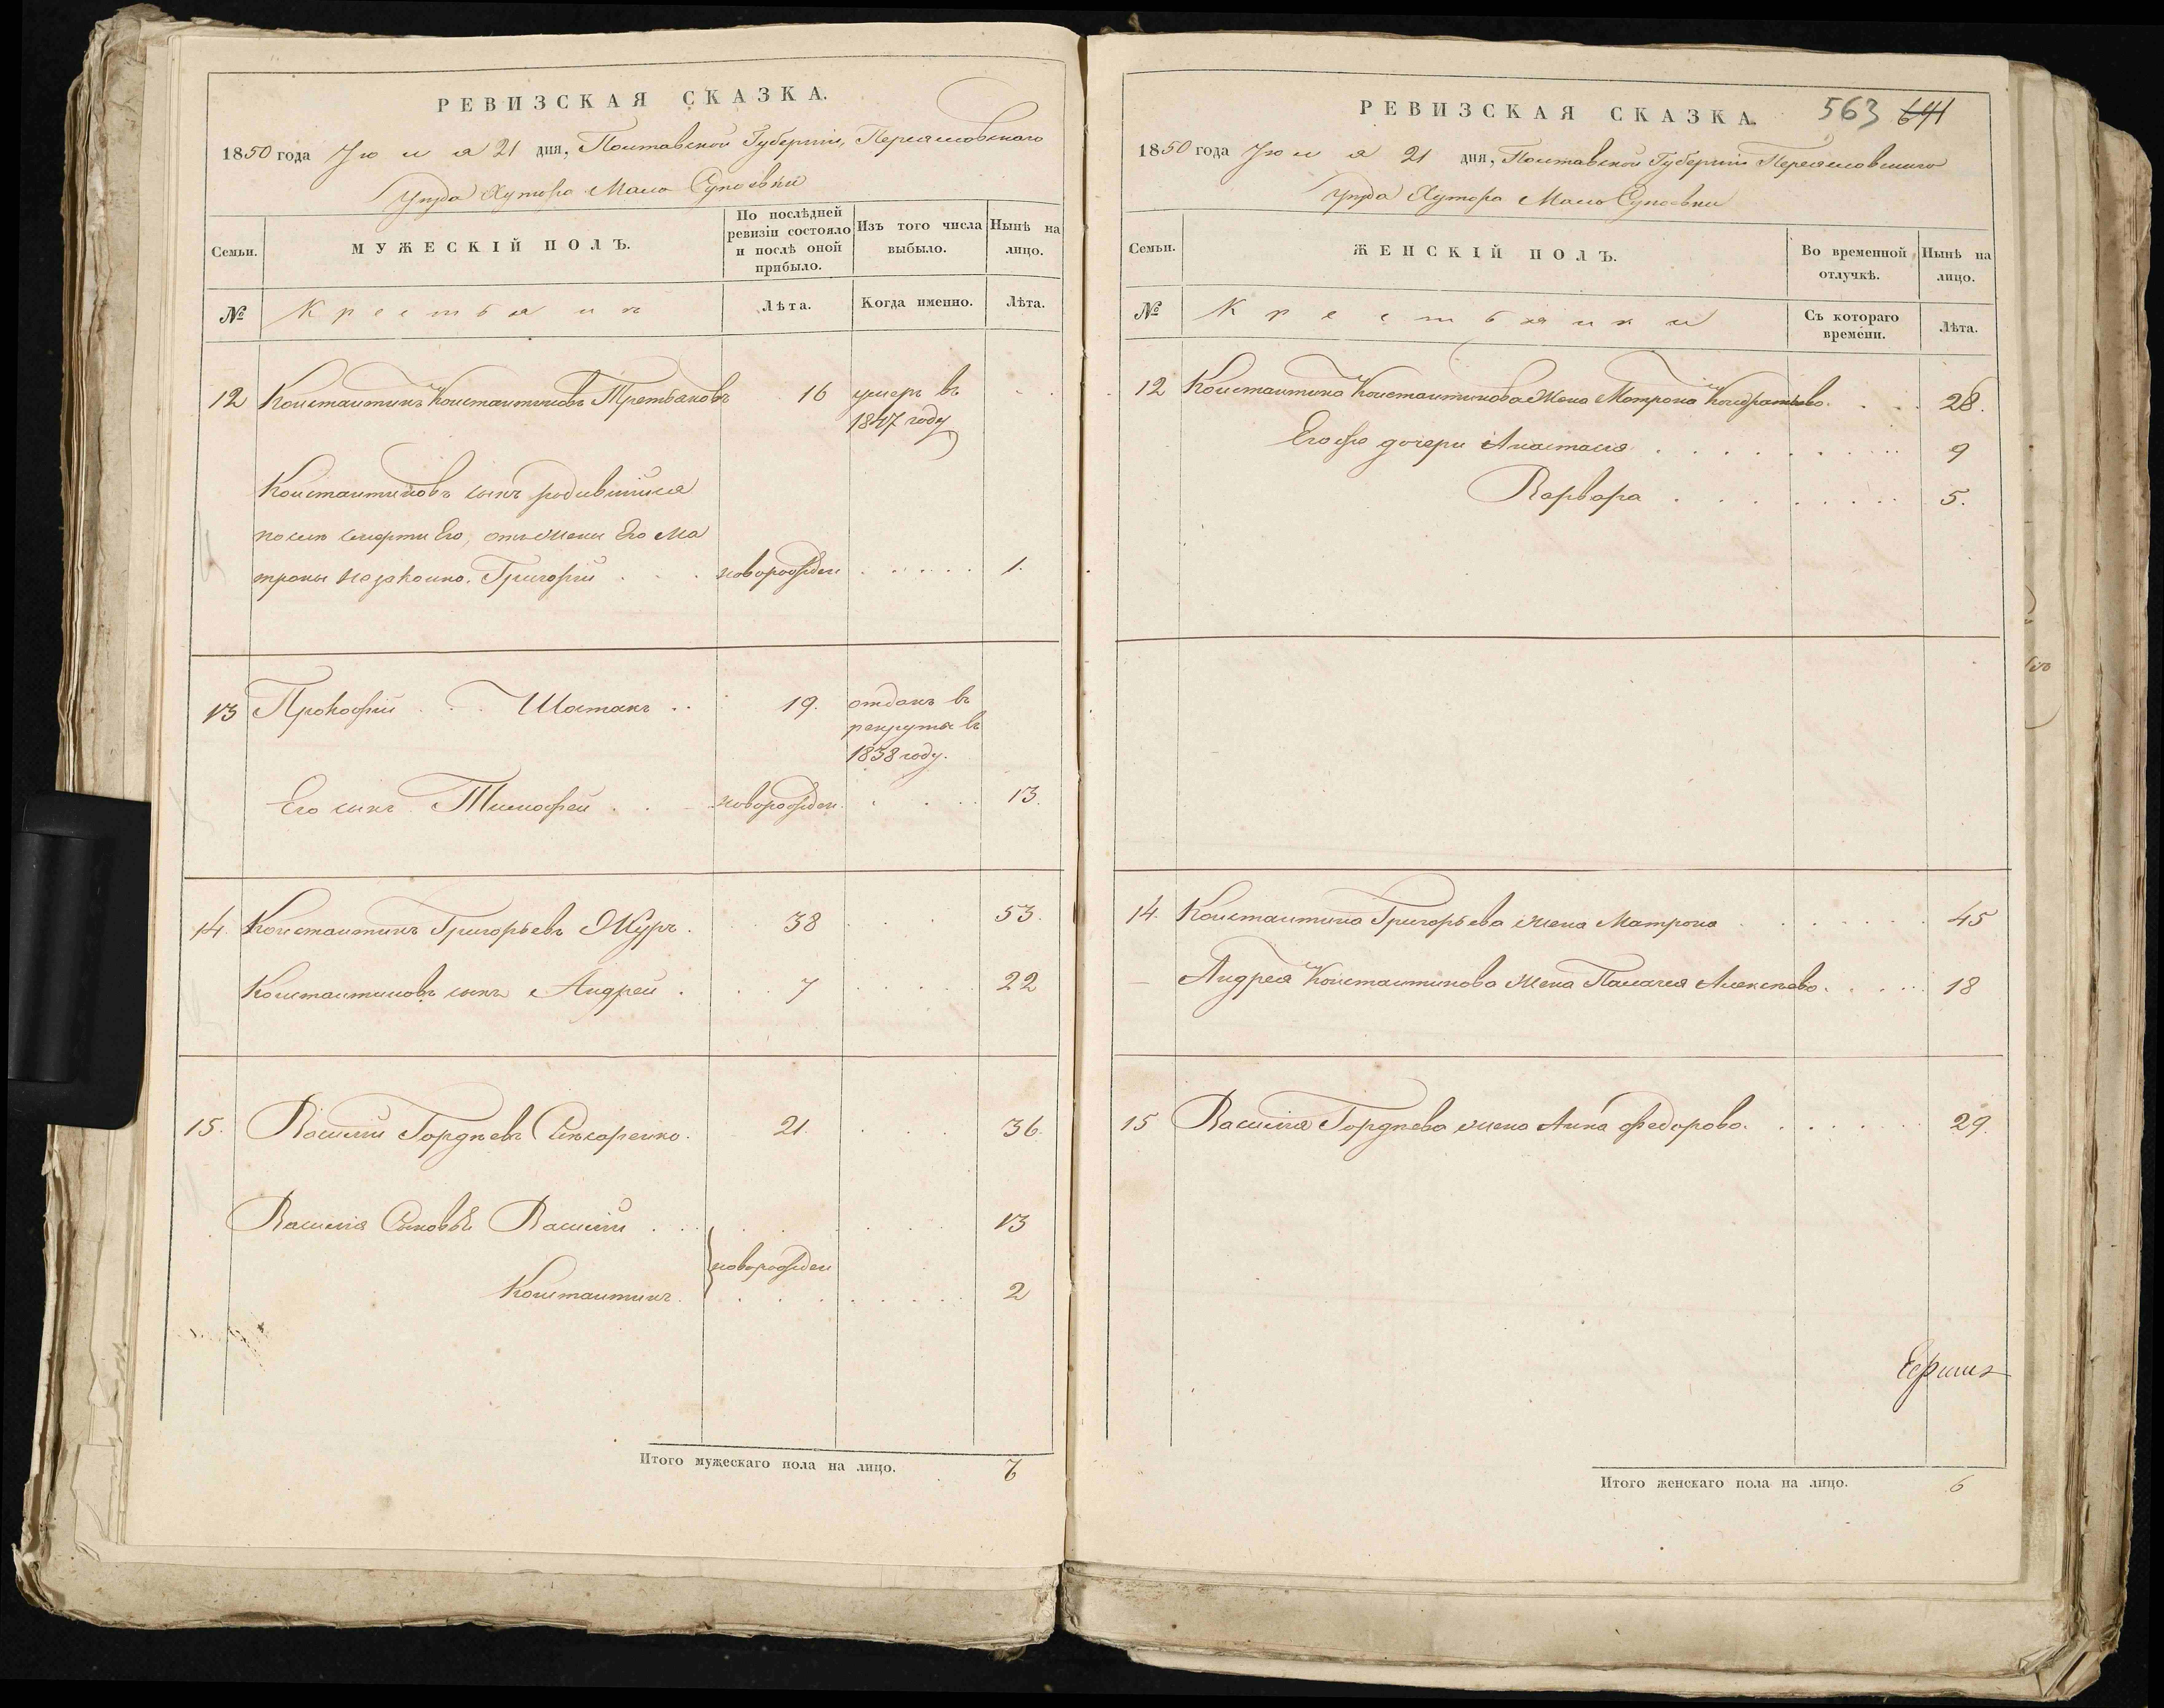 РЕВИЗСКАЯ СКАЗКА.
1850 года Июля 21 дня, Полтавской Губерніи, Переяславскаго
Уѣзда Хутора Мало Супоевки
Семьи.
МУЖЕСКІЙ ПОЛЪ.
По послѣдней ревизіи состояло и послѣ оной прибыло.
Изъ того числа выбыло.
Нынѣ на лицо.
№
Крестьянъ
Лѣта.
Когда именно.
Лѣта.
12 Константинъ Константиновъ Третьяковъ 16 умеръ въ
1847 году
Константиновъ сынъ родившійся
послѣ смерти Его, отъ жены Его Ма
троны незаконно. Григорій новорожден 1.
13 Прокофій Шостакъ 19. отданъ въ
рекруты въ
1838 году.
Его сынъ Тимофей новорожден. 13.
14. Константинъ Григорьевъ Журъ. 38 53.
Константиновъ сынъ Андрей. 7 22
15. Василій Гордѣевъ Слюсаренко. 21. 36.
Василія Сыновья Василій 13
новорожден
Константинъ. 2
Итого мужескаго пола на лицо. 7
РЕВИЗСКАЯ СКАЗКА. 563 641
1850 года Июля 21 дня, Полтавской Губерніи Переяславскаго
Уѣзда Хутора Мало Супоевки
Семьи.
ЖЕНСКІЙ ПОЛЪ.
Во временной отлучкѣ.
Нынѣ на лицо.
№
Крестьянки
Съ котораго времени.
Лѣта.
12 Константина Константинова Жена Матрона Кондратьева. 28.
Его же дочери Анастасія 9
Варвара 5.
14. Константина Григорьева жена Матрона 45
Андрея Константинова жена Палагея Алексѣева. 18
15 Василія Гордѣева жена Анна Федорова. 29.
Итого женскаго пола на лицо. 6